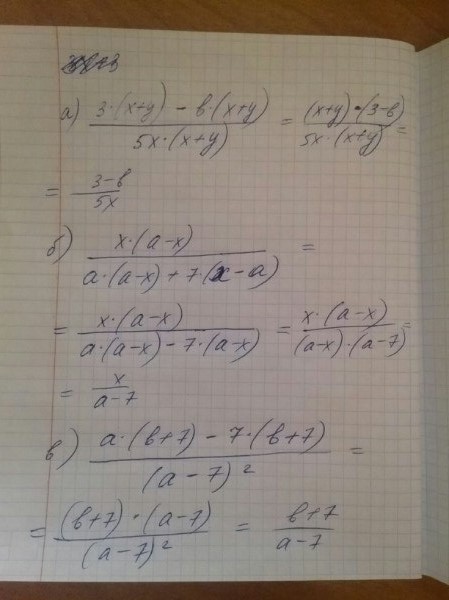 а) (3·(x+y) − b·(x+y)) / (5x·(x+y)) = ((x+y)·(3−b)) / (5x·(x+y)) =
= (3−b) / (5x)
б) (x·(a−x)) / (a·(a−x)+7·(x−a)) =
= (x·(a−x)) / (a·(a−x)−7·(a−x)) = (x·(a−x)) / ((a−x)·(a−7)) =
= x / (a−7)
в) (a·(b+7) − 7·(b+7)) / (a−7)² =
= ((b+7)·(a−7)) / (a−7)² = (b+7) / (a−7)